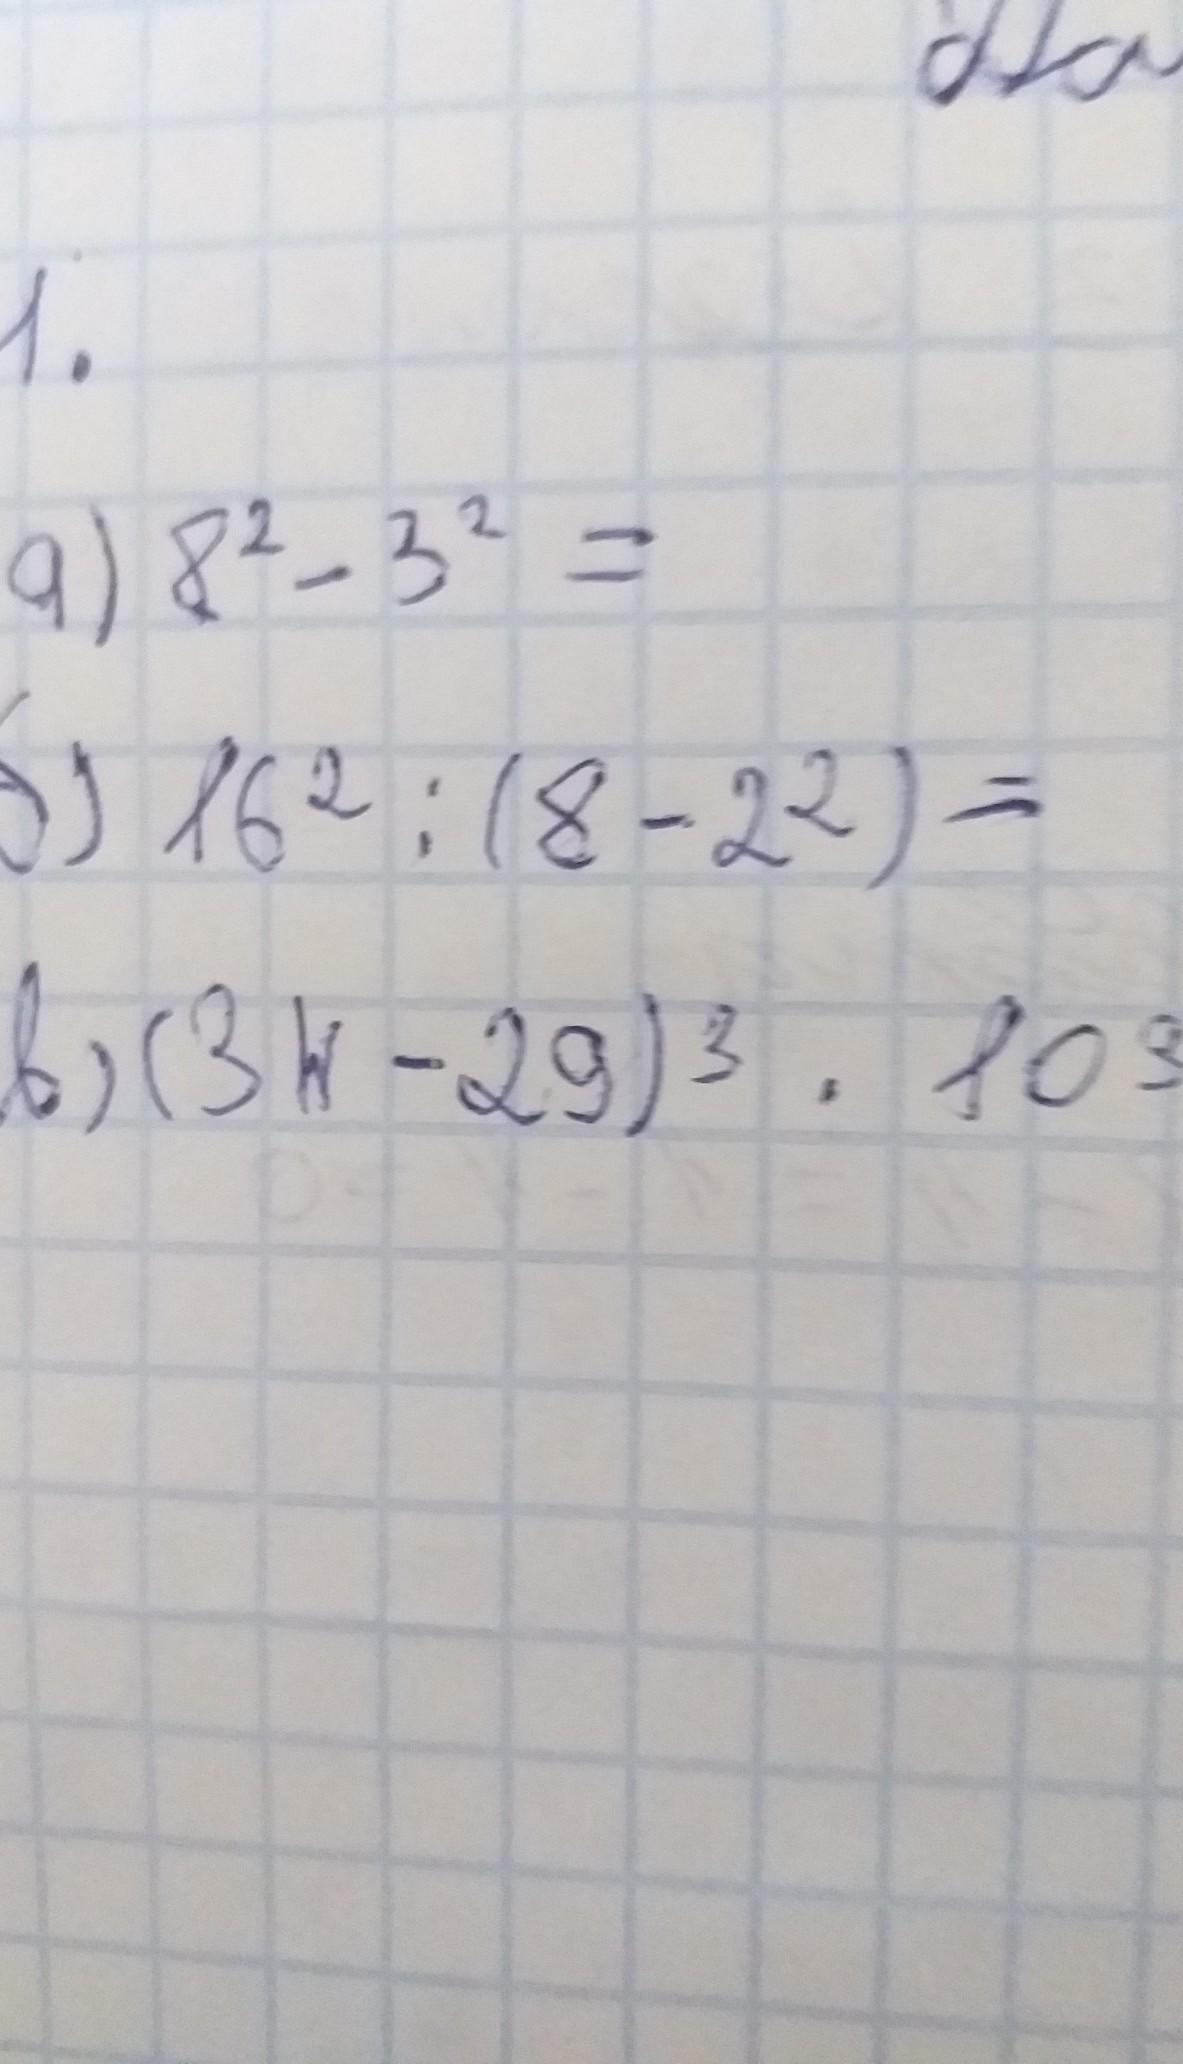 1.
а) 8² - 3² =
б) 16² : (8 - 2²) =
в) (34 - 29)³ · 10³